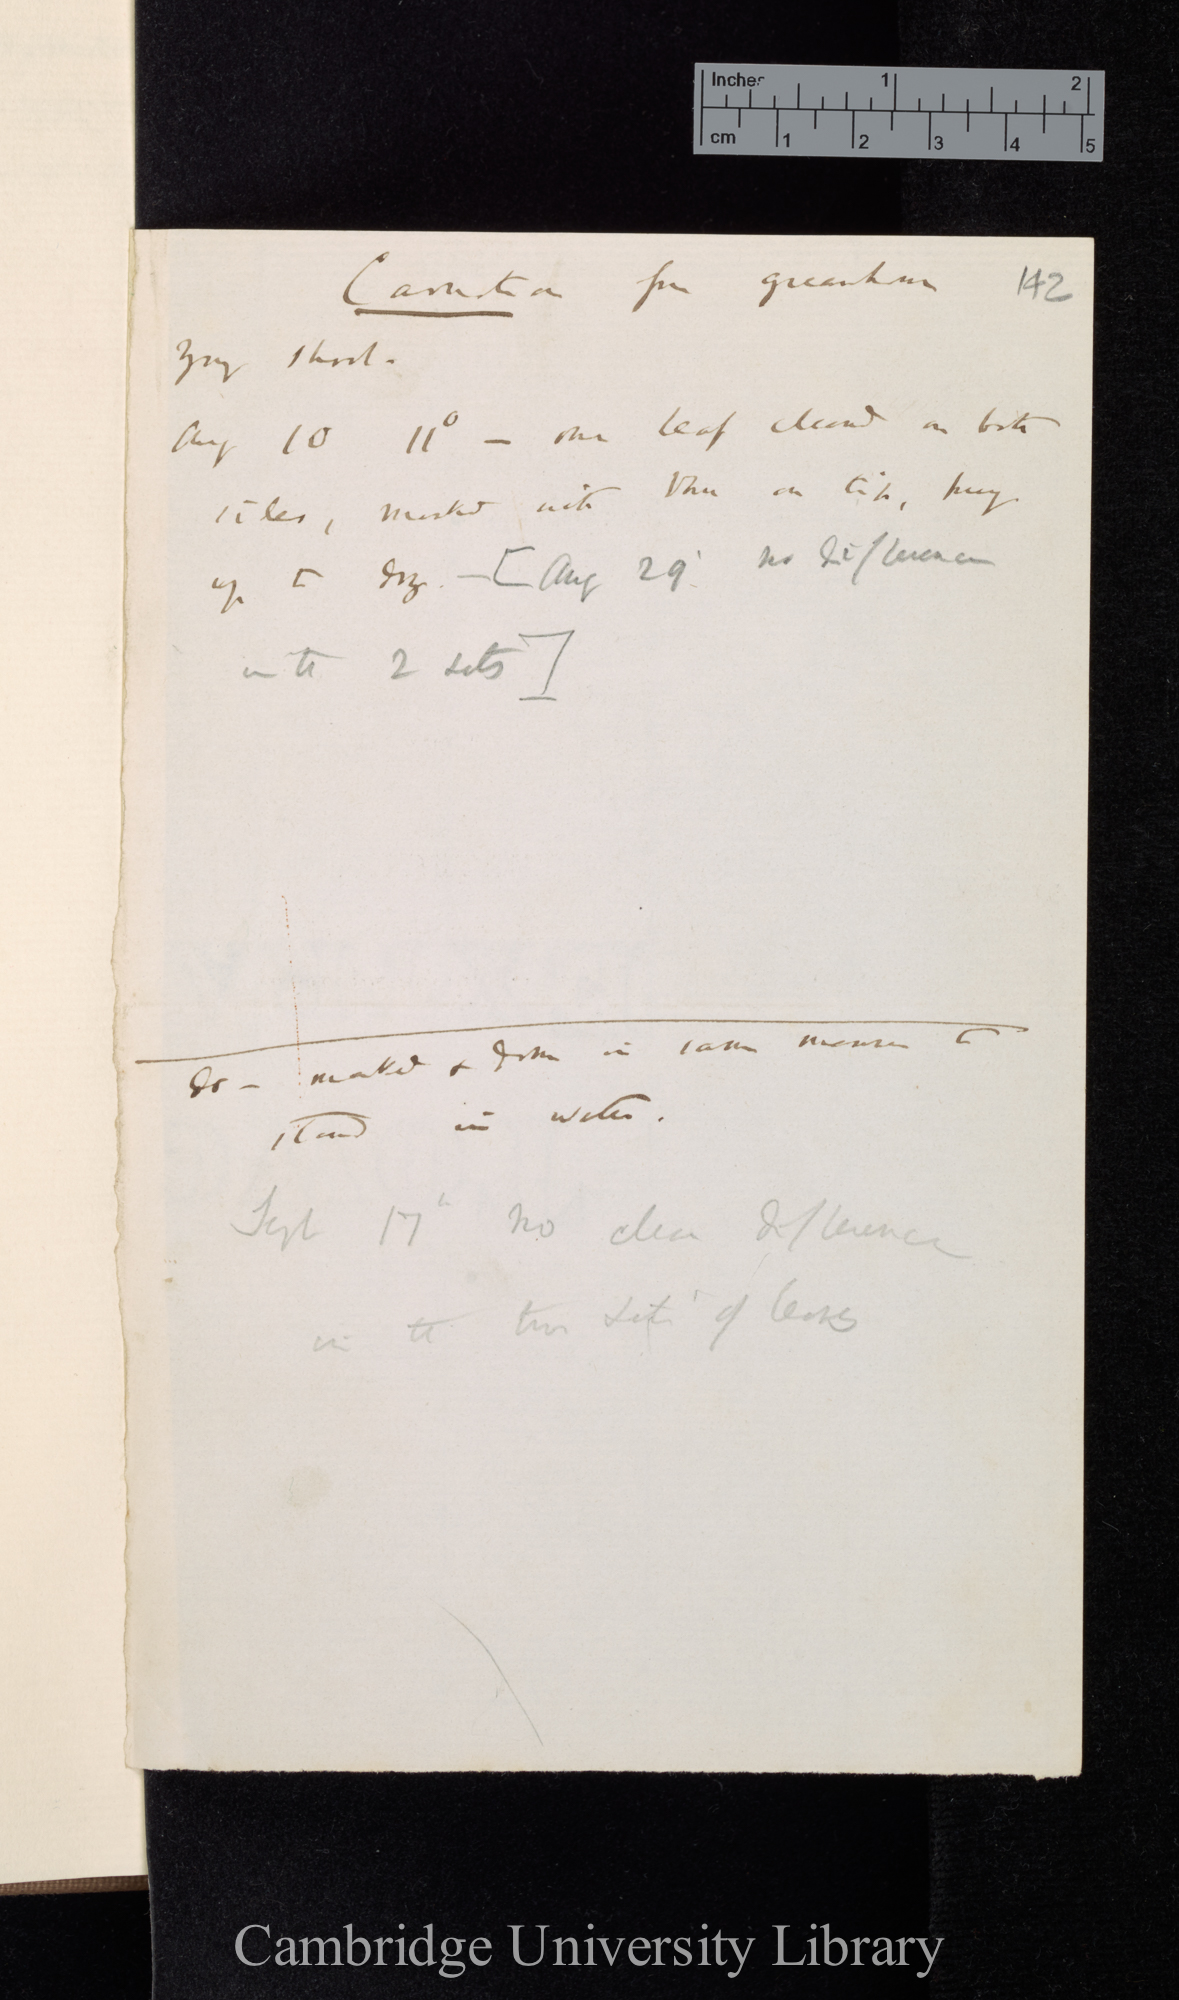 Inches 1 2
cm 1 2 3 4 5
Carnation from greenhouse 142
Young shoot.
Aug 10 11° — one leaf cleaned on both
sides, marked with thread on tip, hung
up to dry. — [Aug 29' no difference
in the 2 sets]
do — marked & done in same manner to
stand in water.
Sept 17th no clear difference
in the two sets of leaves
Cambridge University Library